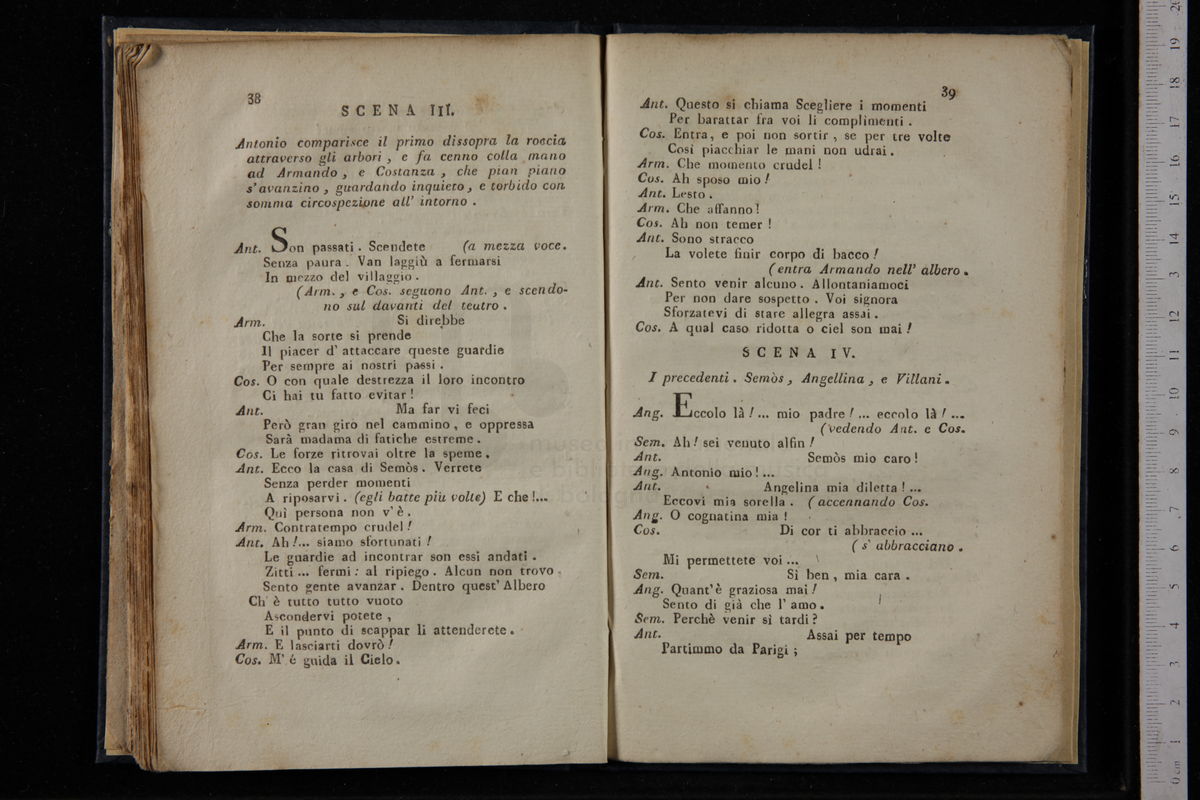 38
SCENA III.
Antonio comparisce il primo dissopra la roccia
attraverso gli arbori , e fa cenno colla mano
ad Armando , e Costanza , che pian piano
s' avanzino , guardando inquieto , e torbido con
somma circospezione all' intorno .
Ant. Son passati . Scendete (a mezza voce.
Senza paura . Van laggiù a fermarsi
In mezzo del villaggio .
(Arm. , e Cos. seguono Ant. , e scendo-
no sul davanti del teatro .
Arm. Si direbbe
Che la sorte si prende
Il piacer d' attaccare queste guardie
Per sempre ai nostri passi .
Cos. O con quale destrezza il loro incontro
Ci hai tu fatto evitar !
Ant. Ma far vi feci
Però gran giro nel cammino , e oppressa
Sarà madama di fatiche estreme .
Cos. Le forze ritrovai oltre la speme .
Ant. Ecco la casa di Semòs . Verrete
Senza perder momenti
A riposarvi . (egli batte più volte) E che !...
Quì persona non v' è .
Arm. Contratempo crudel !
Ant. Ah !... siamo sfortunati !
Le guardie ad incontrar son essi andati .
Zitti ... fermi : al ripiego . Alcun non trovo .
Sento gente avanzar . Dentro quest' Albero
Ch' è tutto tutto vuoto
Ascondervi potete ,
E il punto di scappar li attenderete .
Arm. E lasciarti dovrò !
Cos. M' è guida il Cielo .
39
Ant. Questo si chiama Scegliere i momenti
Per barattar fra voi li complimenti .
Cos. Entra, e poi non sortir , se per tre volte
Così piacchiar le mani non udrai .
Arm. Che momento crudel !
Cos. Ah sposo mio !
Ant. Lesto .
Arm. Che affanno !
Cos. Ah non temer !
Ant. Sono stracco
La volete finir corpo di bacco !
(entra Armando nell' albero .
Ant. Sento venir alcuno . Allontaniamoci
Per non dare sospetto . Voi signora
Sforzatevi di stare allegra assai .
Cos. A qual caso ridotta o ciel son mai !
SCENA IV.
I precedenti . Semòs , Angellina , e Villani .
Ang. Eccolo là !... mio padre !... eccolo là !...
(vedendo Ant. e Cos.
Sem. Ah ! sei venuto alfin !
Ant. Semòs mio caro !
Ang. Antonio mio ! ...
Ant. Angelina mia diletta ! ...
Eccovi mia sorella . (accennando Cos.
Ang. O cognatina mia !
Cos. Di cor ti abbraccio ...
(s' abbracciano .
Mi permettete voi ...
Sem. Si ben , mia cara .
Ang. Quant' è graziosa mai !
Sento di già che l' amo .
Sem. Perchè venir sì tardi ?
Ant. Assai per tempo
Partimmo da Parigi ;